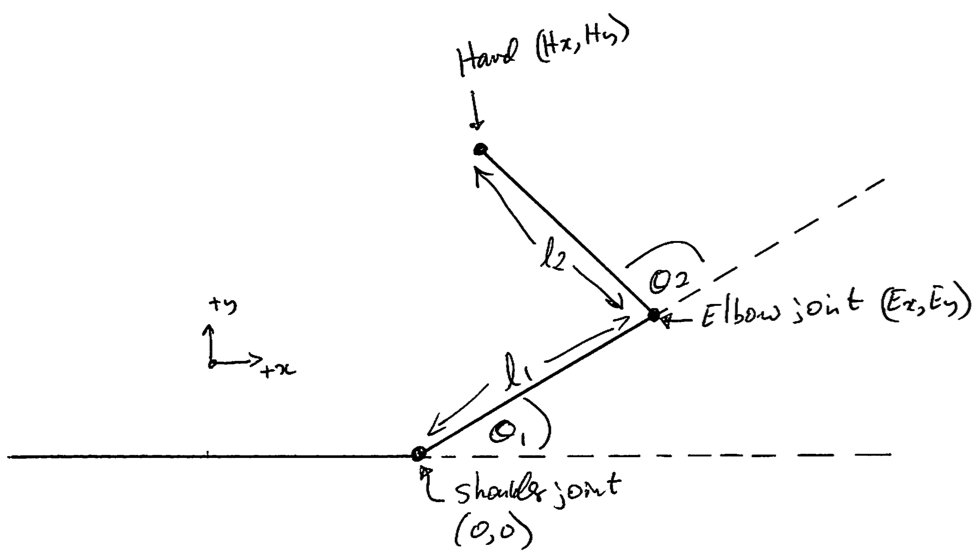 Hand (Hx, Hy)
l2
θ2
Elbow joint (Ex, Ey)
+y
+x
l1
θ1
Shoulder joint
(0,0)